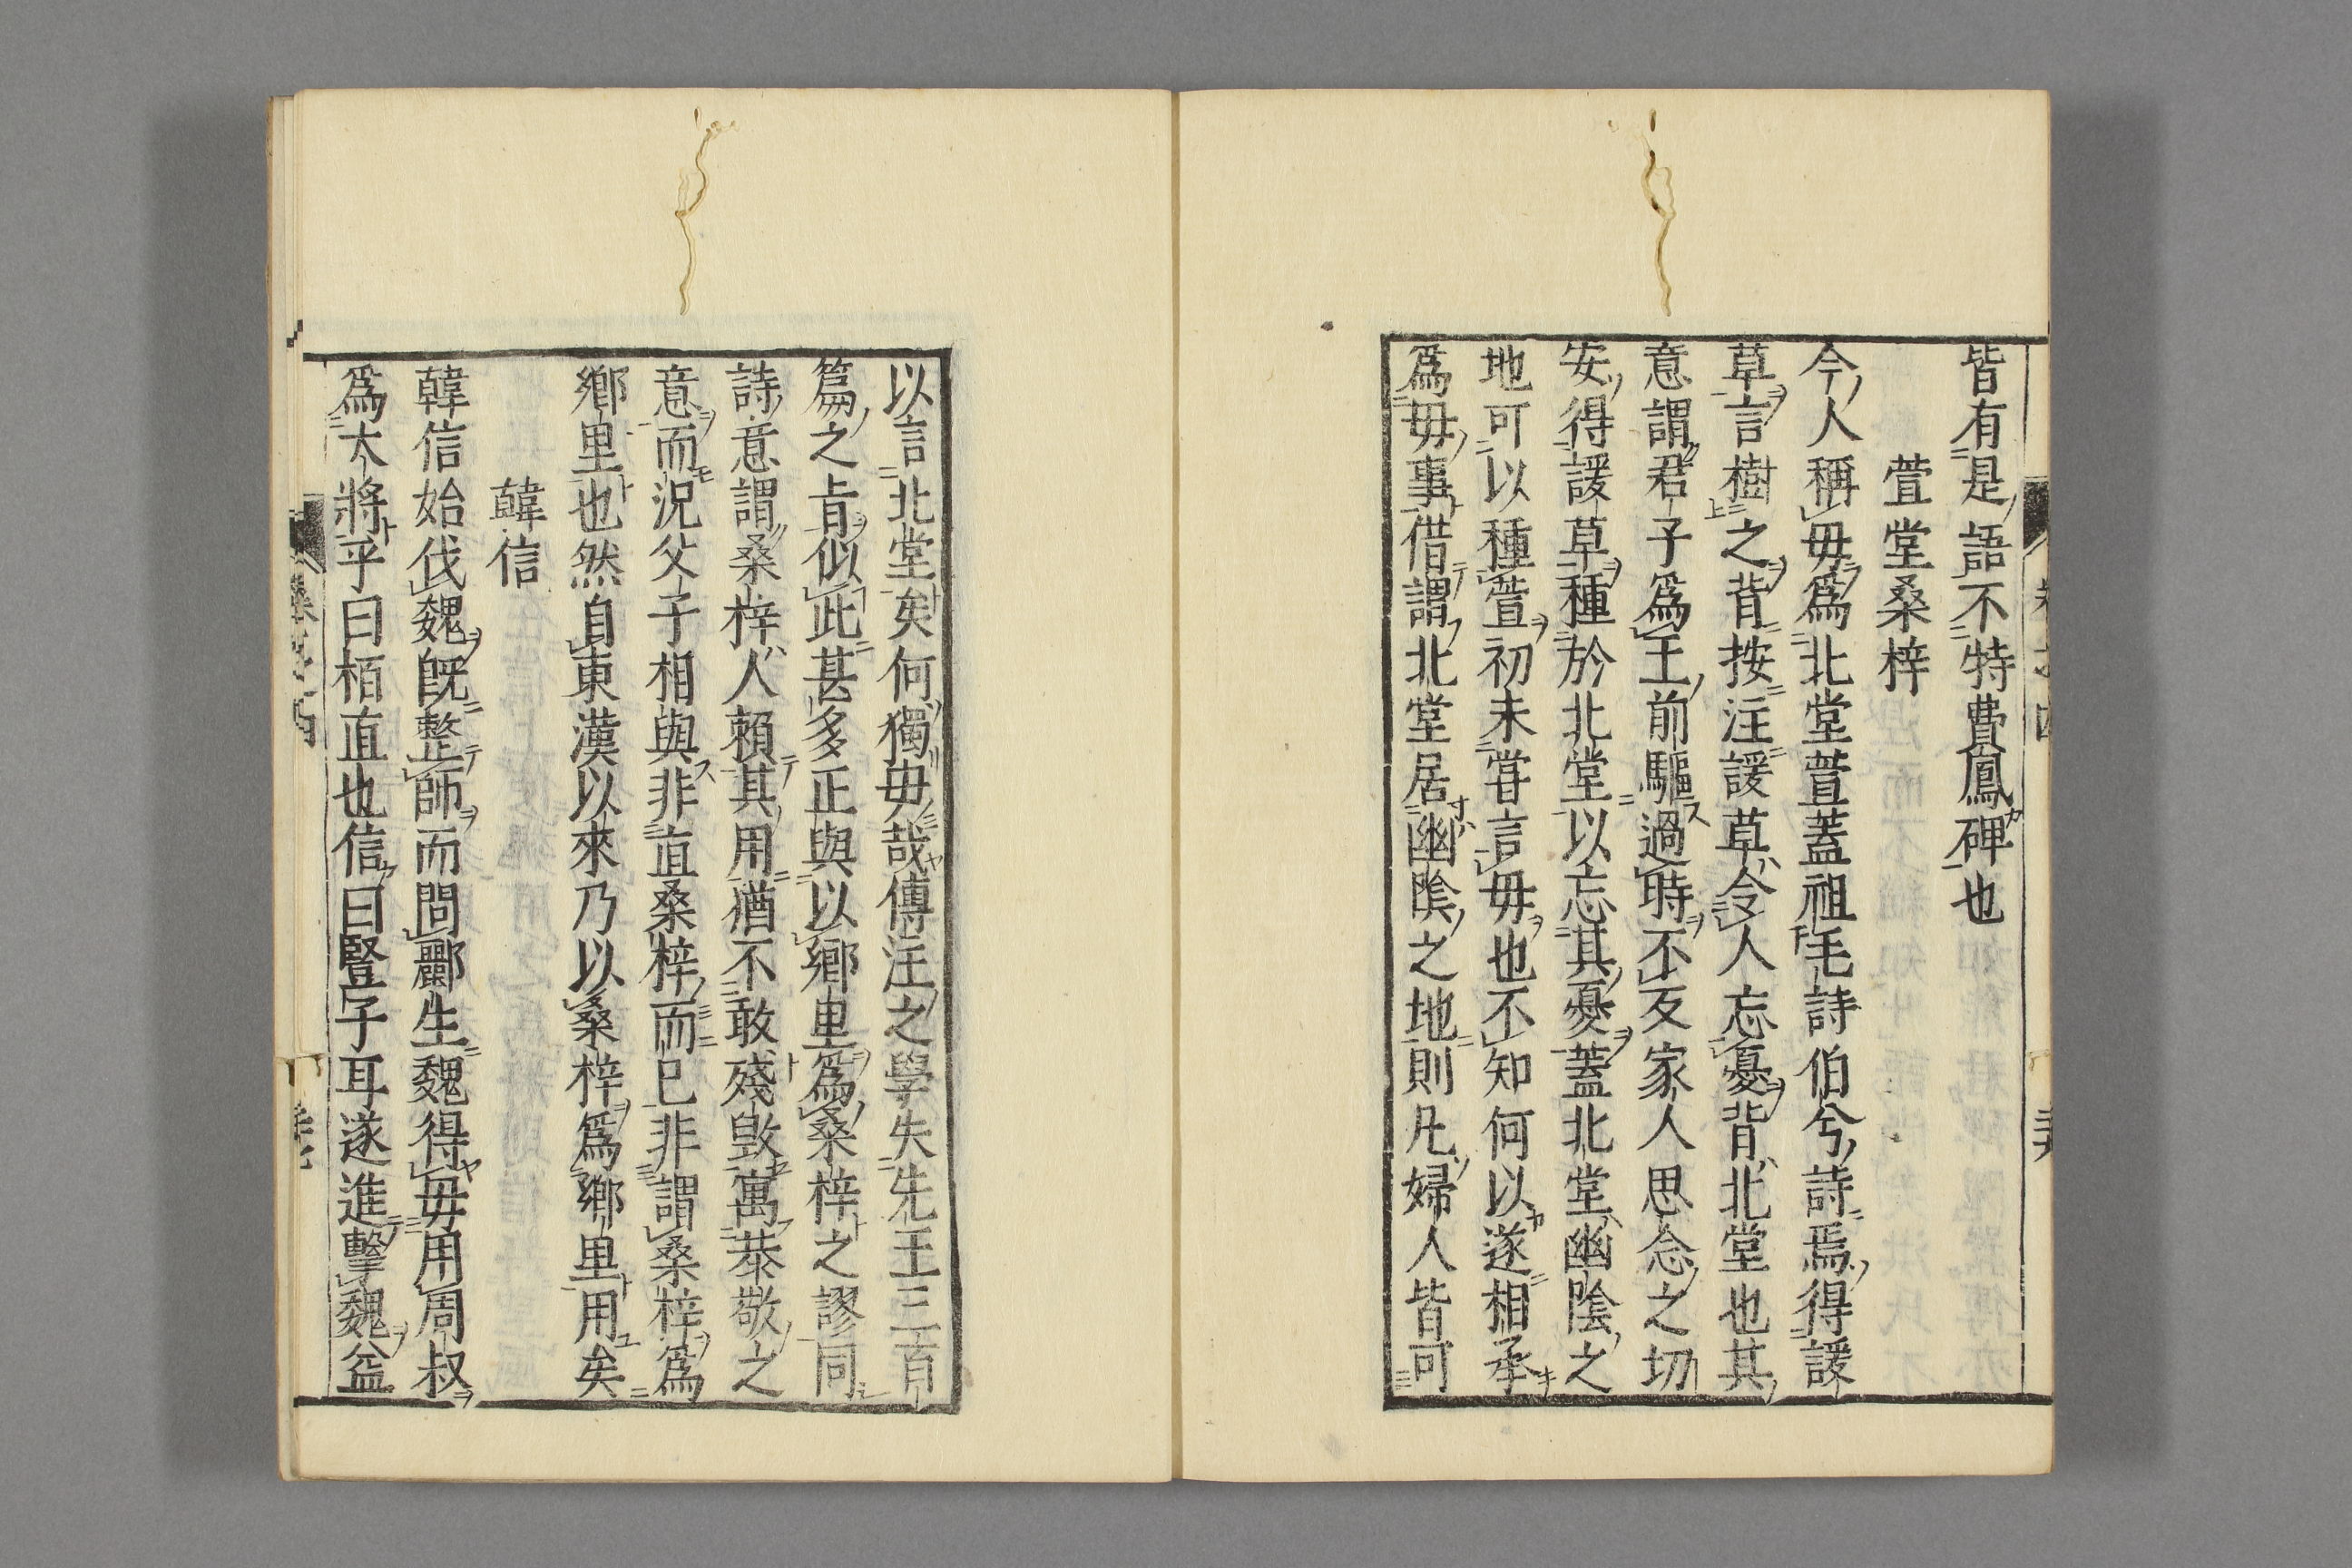 皆有是語不特費鳳碑也
萱堂桑梓
今人稱毋爲北堂萱蓋祖毛詩伯兮詩焉得諼
草言樹之背按注諼草令人忘憂背北堂也其
意謂君子爲王前驅過時不反家人思念之切
安得諼草種於北堂以忘其憂蓋北堂幽陰之
地可以種萱初未甞言毋也不知何以遂相承
爲毋事借謂北堂居幽陰之地則凡婦人皆可
以言北堂矣何獨毋哉傳注之學失先王三百
篇之㫖似此甚多正與以鄉里爲桑梓之謬同
詩意謂桑梓人賴其用猶不敢殘毀寓恭敬之
意而況父子相與非直桑梓而已非謂桑梓爲
鄉里也然自東漢以來乃以桑梓爲鄉里用矣
韓信
韓信始伐魏既整師而問酈生魏得毋用周叔
爲大將乎曰栢直也信曰豎子耳遂進擊魏盆